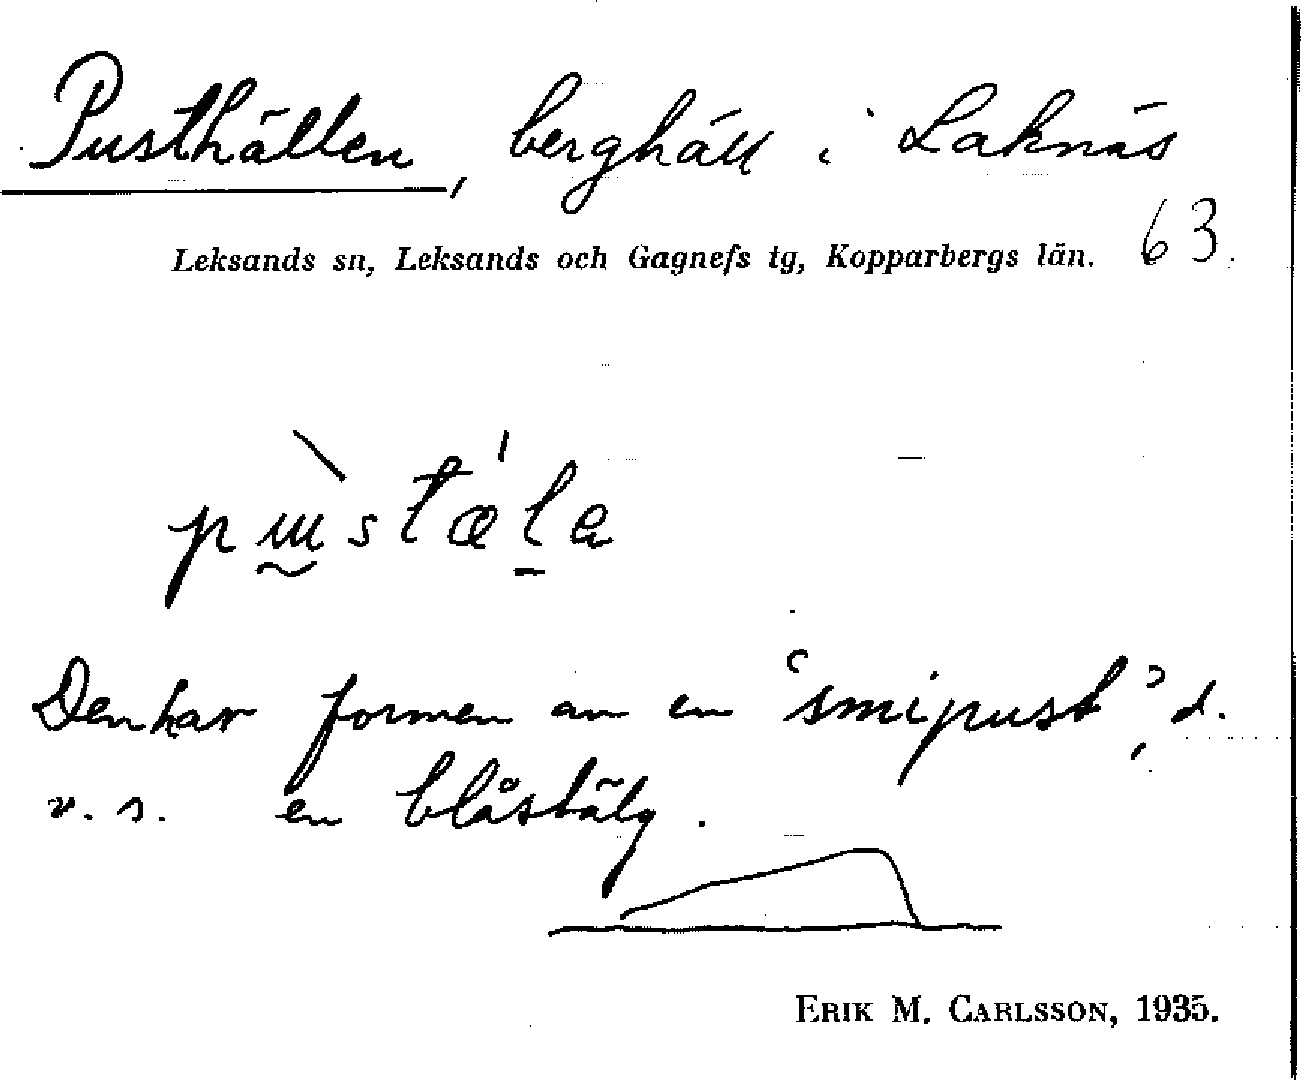 Pusthällen, berghäll i Laknäs
Leksands sn, Leksands och Gagnefs tg, Kopparbergs län. 63.
Den har formen av en ʿsmipustʾ, d.
v. s. en blåsbälg.
ERIK M. CARLSSON, 1935.